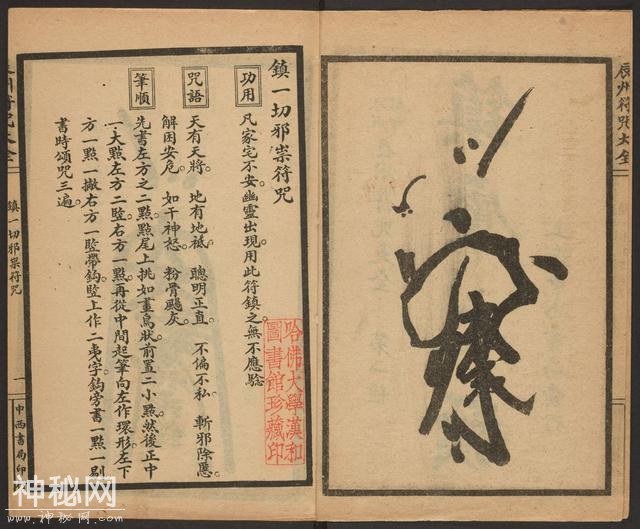 辰州符咒大全
鎮一切邪祟符咒
功用
凡家宅不安。幽靈出現。用此符鎮之。無不應驗
咒語
天有天將。地有地祇。聰明正直。不偏不私。斬邪除惡。
解困安危。如干神怒。粉骨颺灰。
筆順
先書左方之二點。點尾上挑。如畫鳥狀。前置二小點。然後正中
一大點。左方二豎。右方一點。再從中間起筆。向左作環形。左下
方一點一撇。右方一豎帶鈎。豎上作二夷字。鈎旁書一點一剔。
書時頌咒三遍。
哈佛大學漢和
圖書館珍藏印
鎮一切邪祟符咒
一
中西書局印
神秘网
www.神秘网.com